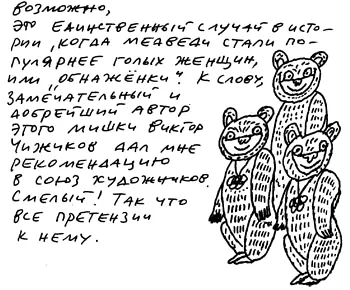 возможно,
это единственный случай в исто-
рии, когда медведи стали по-
пулярнее голых женщин,
или „обнажёнки". К слову,
замечательный и
добрейший автор
этого мишки Виктор
Чижиков дал мне
рекомендацию
в союз художников.
Смелый! Так что
все претензии
к нему.